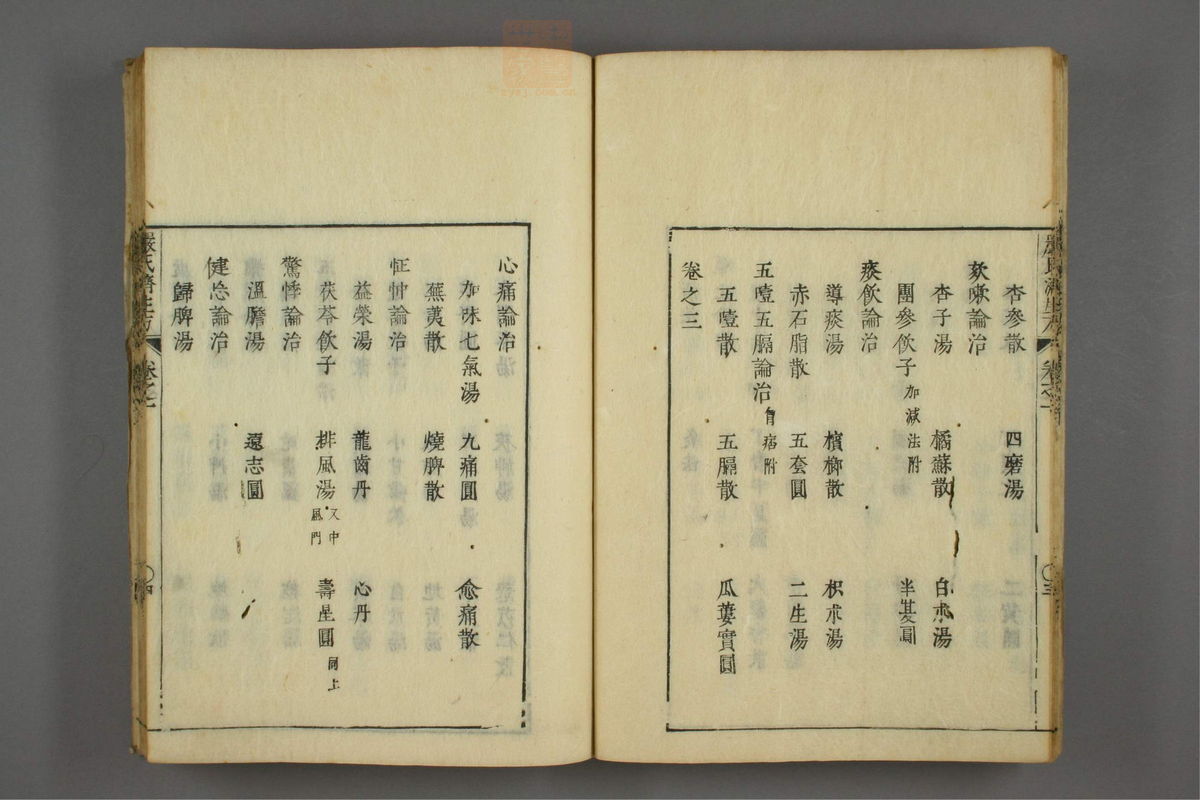 杏參散 四磨湯
欬嗽論治
杏子湯 橘蘇散 白朮湯
團參飲子加減法附 半夏圓
痰飲論治
導痰湯 檳榔散 枳朮湯
赤石脂散 五套圓 二生湯
五噎五膈論治
五噎散 五膈散 瓜蔞實圓
卷之三
心痛論治
加味七氣湯 九痛圓 愈痛散
蕪荑散 燒脾散
怔忡論治
益榮湯 龍齒丹 心丹
茯苓飲子 排風湯又中風門 壽星圓同上
驚悸論治
溫膽湯 遠志圓
健忘論治
歸脾湯
嚴氏濟生方